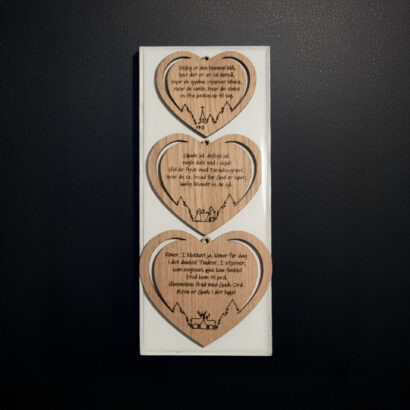 Dejlig er den himmel blå,
lyst det er at se derpå,
hvor de gyldne stjerner blinke,
hvor de smile, hvor de vinke
os fra jorden op til sig.
Glade jul, dejlige jul,
engle daler ned i skjul!
Hid de flyve med Paradisgrønt,
hvor de se, hvad for Gud er kønt,
lønlig iblandt os de gå.
Kimer, I klokker! ja, kimer før dag
i det dunkle! Tindrer, I stjerner,
som englenes øjne kan funkle!
Fred kom til jord,
Himmelens fred med Guds Ord.
Æren er Guds i det høje!